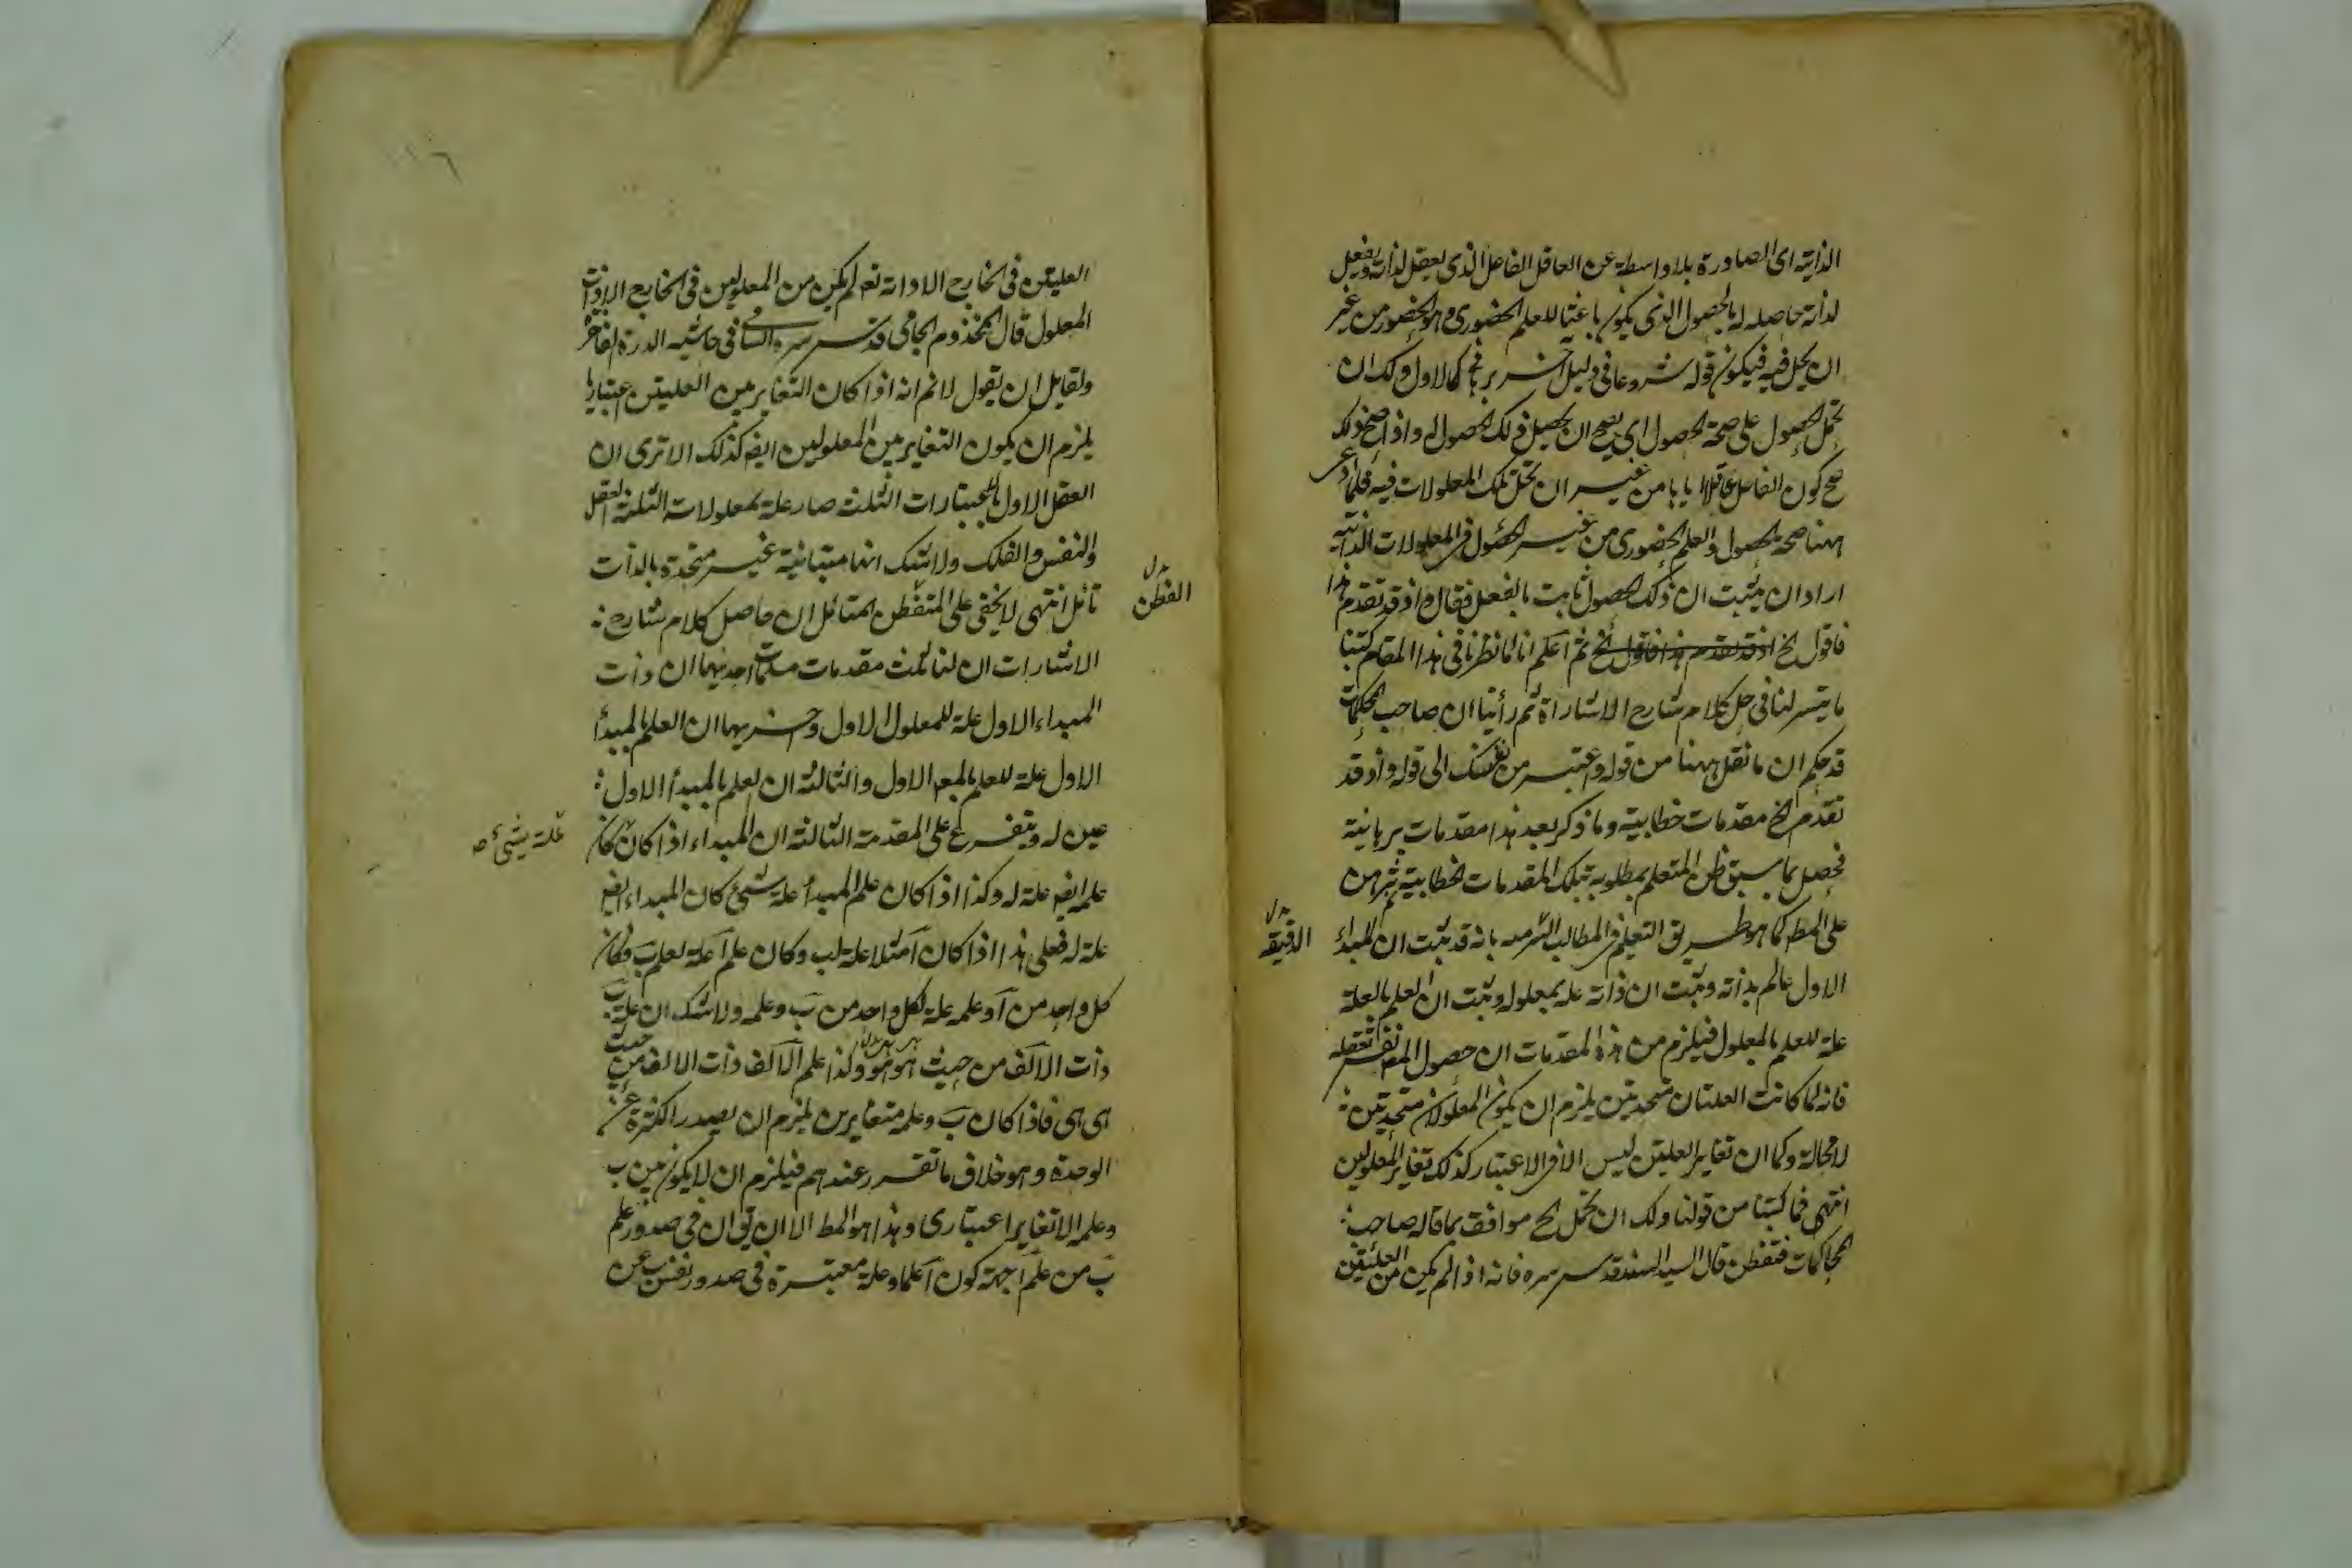 الذاتية اى الصادرة بلا واسطة عن العاقل الفاعل الذى يعقل لذاته ويفعل
لذاته حاصلة له بالحصول الذى يكون باعثا للعلم الحضورى وهو الحضور من غير
ان يحل فيه فيكون قوله شروعا فى دليل آخر كالاول ولك ان
تحمل الحصول على صحة الحصول اى يصح ان يحصل ذلك الحصول له واذا صح ذلك
صح كون الفاعل عاقلا اياها من غير ان تحل تلك المعلولات فيه فلما
ههنا صحة الحصول والعلم الحضورى من غير الحصول فى المعلولات الذاتية
اراد ان يثبت ان ذلك الحصول ثابت بالفعل فقال واذ قد تقدم هذا
فاقول الخ اذ قد تقدم هذا فاقول الخ ثم اعلم انا لما نظرنا فى هذا المقام كتبنا
ما تيسر لنا فى حل كلام شارح الاشارات ثم رأينا ان صاحب المحكمات
قد حكم ان ما نقل ههنا من قوله واعتبر من نفسك الى قوله واذ قد
تقدم الخ مقدمات خطابية وما ذكر بعد هذا مقدمات برهانية
فحصل بما سبق ظن المتعلم بمطلوبه بتلك المقدمات الخطابية ثم برهن
على المط كما هو طريق التعليم فى المطالب بانه قد ثبت ان المبدأ
الدقيقة
الاول عالم بذاته وثبت ان ذاته علة لمعلوله وثبت ان العلم بالعلة
علة للعلم بالمعلول فيلزم من هذه المقدمات ان حصول نفس تعقله
فانه لما كانت العلتان متحدتين يلزم ان يكون المعلولان متحدين
لا محالة وكما ان تغاير العلتين ليس الا فى الاعتبار كذلك تغاير المعلولين
انتهى فما كتبنا من قولنا ولك ان تحمل الخ موافق بما قاله صاحب
المحاكمات فتفطن قال السيد السند قدس سره فانه اذا لم يكن من العلتين
العليتين فى الخارج الا ذاته تعالى لم يكن من المعلولين فى الخارج الا ذات
المعلول قال المخدوم الجامى قدس سره السامى فى حاشية الدرة الفاخرة
ولقايل ان يقول لا نم انه اذا كان التغاير بين العليتين اعتباريا
يلزم ان يكون التغاير بين المعلولين ايضا كذلك الا ترى ان
العقل الاول بالاعتبارات الثلث صار علة لمعلولات الثلثة العقل
والنفس والفلك ولا شك انها متباينة غير متحدة بالذات
تأمل انتهى لا يخفى على المتفطن المتأمل ان حاصل كلام شارح
الفطن
الاشارات ان لنا ثلث مقدمات مسلمات احديها ان ذات
المبداء الاول علة للمعلول الاول واخريها ان العلم بالمبدأ
الاول علة للعلم بالمعلول الاول والثالثة ان العلم بالمبدأ الاول
عين له ويتفرع على المقدمة الثالثة ان المبداء اذا كان كان
علة شئ صح
علمه ايضا علة له وكذا اذا كان علم المبدأ علة شئ كان المبداء ايضا
علة له فعلى هذا اذا كان آ مثلا علة لب وكان علم آ علة لعلم ب فكان
كل واحد من آ وعلمه علة لكل واحد من ب وعلمه ولا شك ان علة ب
ذات الالف من حيث هو هو وكذا علم الالف ذات الالف من حيث
هى هى فاذا كان ب وعلمه متغايرين يلزم ان يصدر الكثرة عن
الوحدة وهو خلاف ما تقرر عندهم فيلزم ان لا يكون بين ب
وعلمه الا تغاير اعتبارى وهذا هو المط الا ان يق ان فى صدور علم
ب من علم آ جهة كون آ علما وعلة معتبرة فى صدور نفس ب عن